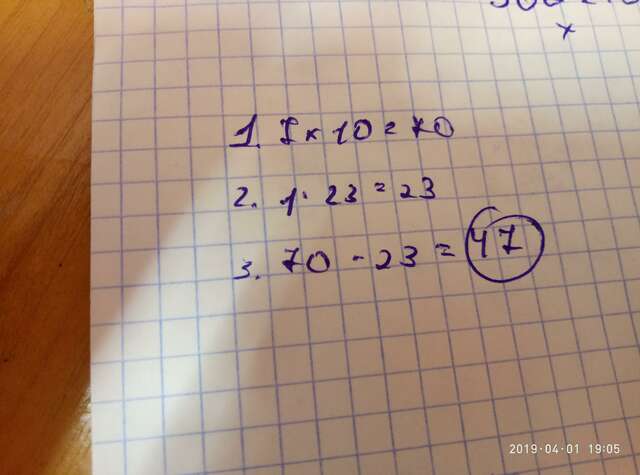 1. 7 × 10 = 70
2. 1 · 23 = 23
3. 70 - 23 = 47
2019-04-01 19:05